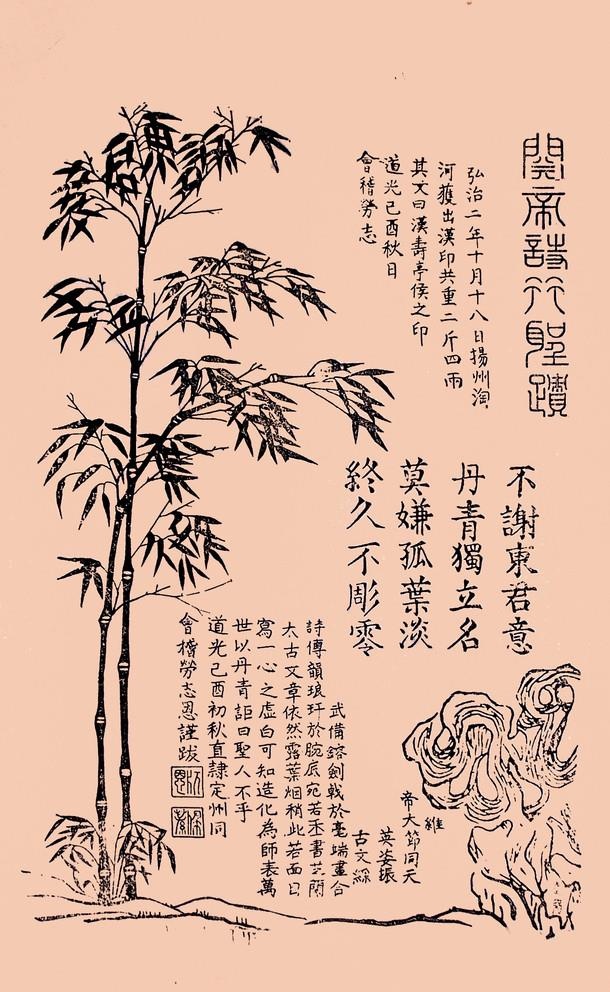 關帝詩竹聖蹟
弘治二年十月十八日揚州淘
河獲出漢印共重二斤四兩
其文曰漢壽亭侯之印
道光己酉秋日
會稽勞志
不謝東君意
丹青獨立名
莫嫌孤葉淡
終久不彫零
維
帝大節同天
英姿振
古文綜
武備鎔劍戟於毫端畫合
詩傳韻琅玕於腕底宛若
太古文章依然露葉烟梢此若
寫一心之虛白可知造化為師表萬
世以丹青詎曰聖人不乎
道光己酉初秋直隸定州同
會稽勞志恩謹跋